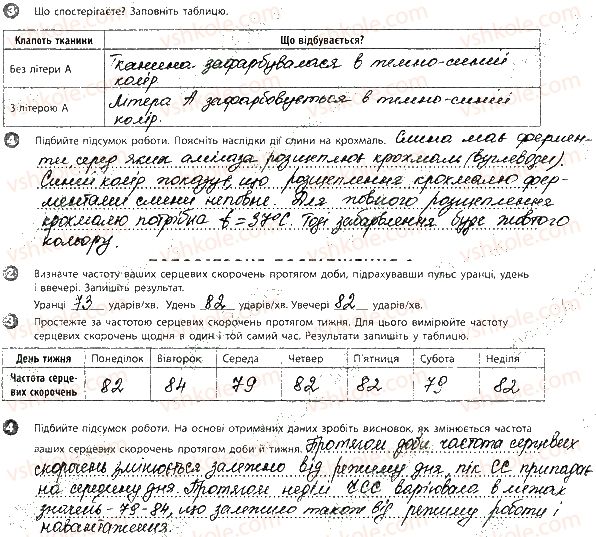 3 Що спостерігаєте? Заповніть таблицю.
Клапоть тканини Що відбувається?
Без літери А Тканина зафарбувалася в темно-синій
колір
З літерою А Літера А зафарбовується в темно-синій
колір.
4 Підбийте підсумок роботи. Поясніть наслідки дії слини на крохмаль. Слина має фермен-
ти серед яких амілаза розщеплює крохмаль (вуглеводи).
Синій колір показує, що розщеплення крохмалю фер-
ментами слини неповне. Для повного розщеплення
крохмалю потрібна t = 37°C. Тоді забарвлення буде жовтого
кольору.
2 Визначте частоту ваших серцевих скорочень протягом доби, підрахувавши пульс уранці, удень
і ввечері. Запишіть результат.
Уранці 73 ударів/хв. Удень 82 ударів/хв. Увечері 82 ударів/хв.
3 Простежте за частотою серцевих скорочень протягом тижня. Для цього вимірюйте частоту
серцевих скорочень щодня в один і той самий час. Результати запишіть у таблицю.
День тижня Понеділок Вівторок Середа Четвер П'ятниця Субота Неділя
Частота серце-
вих скорочень 82 84 79 82 82 79 82
4 Підбийте підсумок роботи. На основі отриманих даних зробіть висновок, як змінюється частота
ваших серцевих скорочень протягом доби й тижня. Протягом доби частота серцевих
скорочень змінюється залежно від режиму дня, пік СС припадає
на середину дня. Протягом неділі ЧСС варіювала в межах
значень - 79-84, що залежило також від режиму роботи і
навантаження.